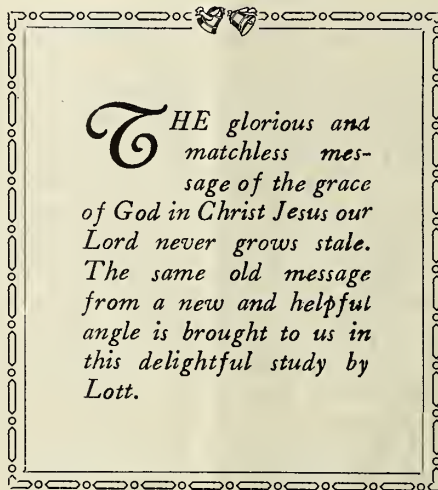 THE glorious and
matchless mes-
sage of the grace
of God in Christ Jesus our
Lord never grows stale.
The same old message
from a new and helpful
angle is brought to us in
this delightful study by
Lott.